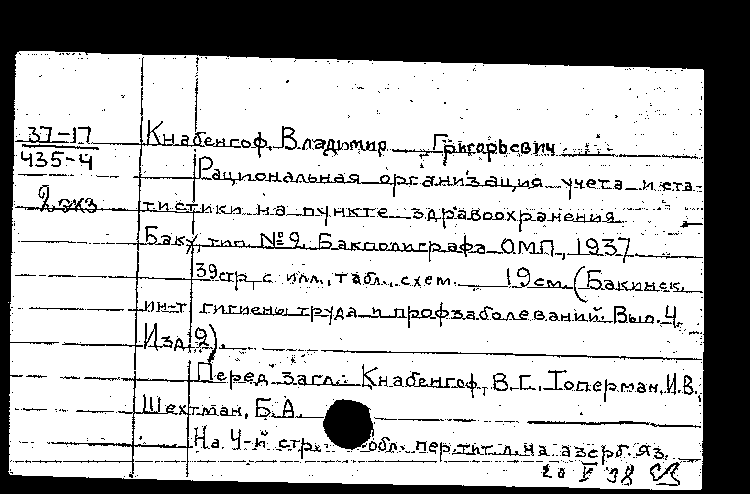 37-17
435-4
2 экз
Кнабенгоф, Владимир Григорьевич
Рациональная организация учета и ста-
тистики на пункте здравоохранения
Баку, тип. №2 Бакполиграфа ОМП, 1937
39 стр. с илл., табл., схем. 19 см. (Бакинск.
ин-т гигиены труда и профзаболеваний. Вып. 4.
Изд. 2).
Перед загл.: Кнабенгоф, В.Г., Топерман, И.В.,
Шехтман, Б.А.
На 4-й стр. обл. пер. тит. л. на азерб. яз.
20 V 38